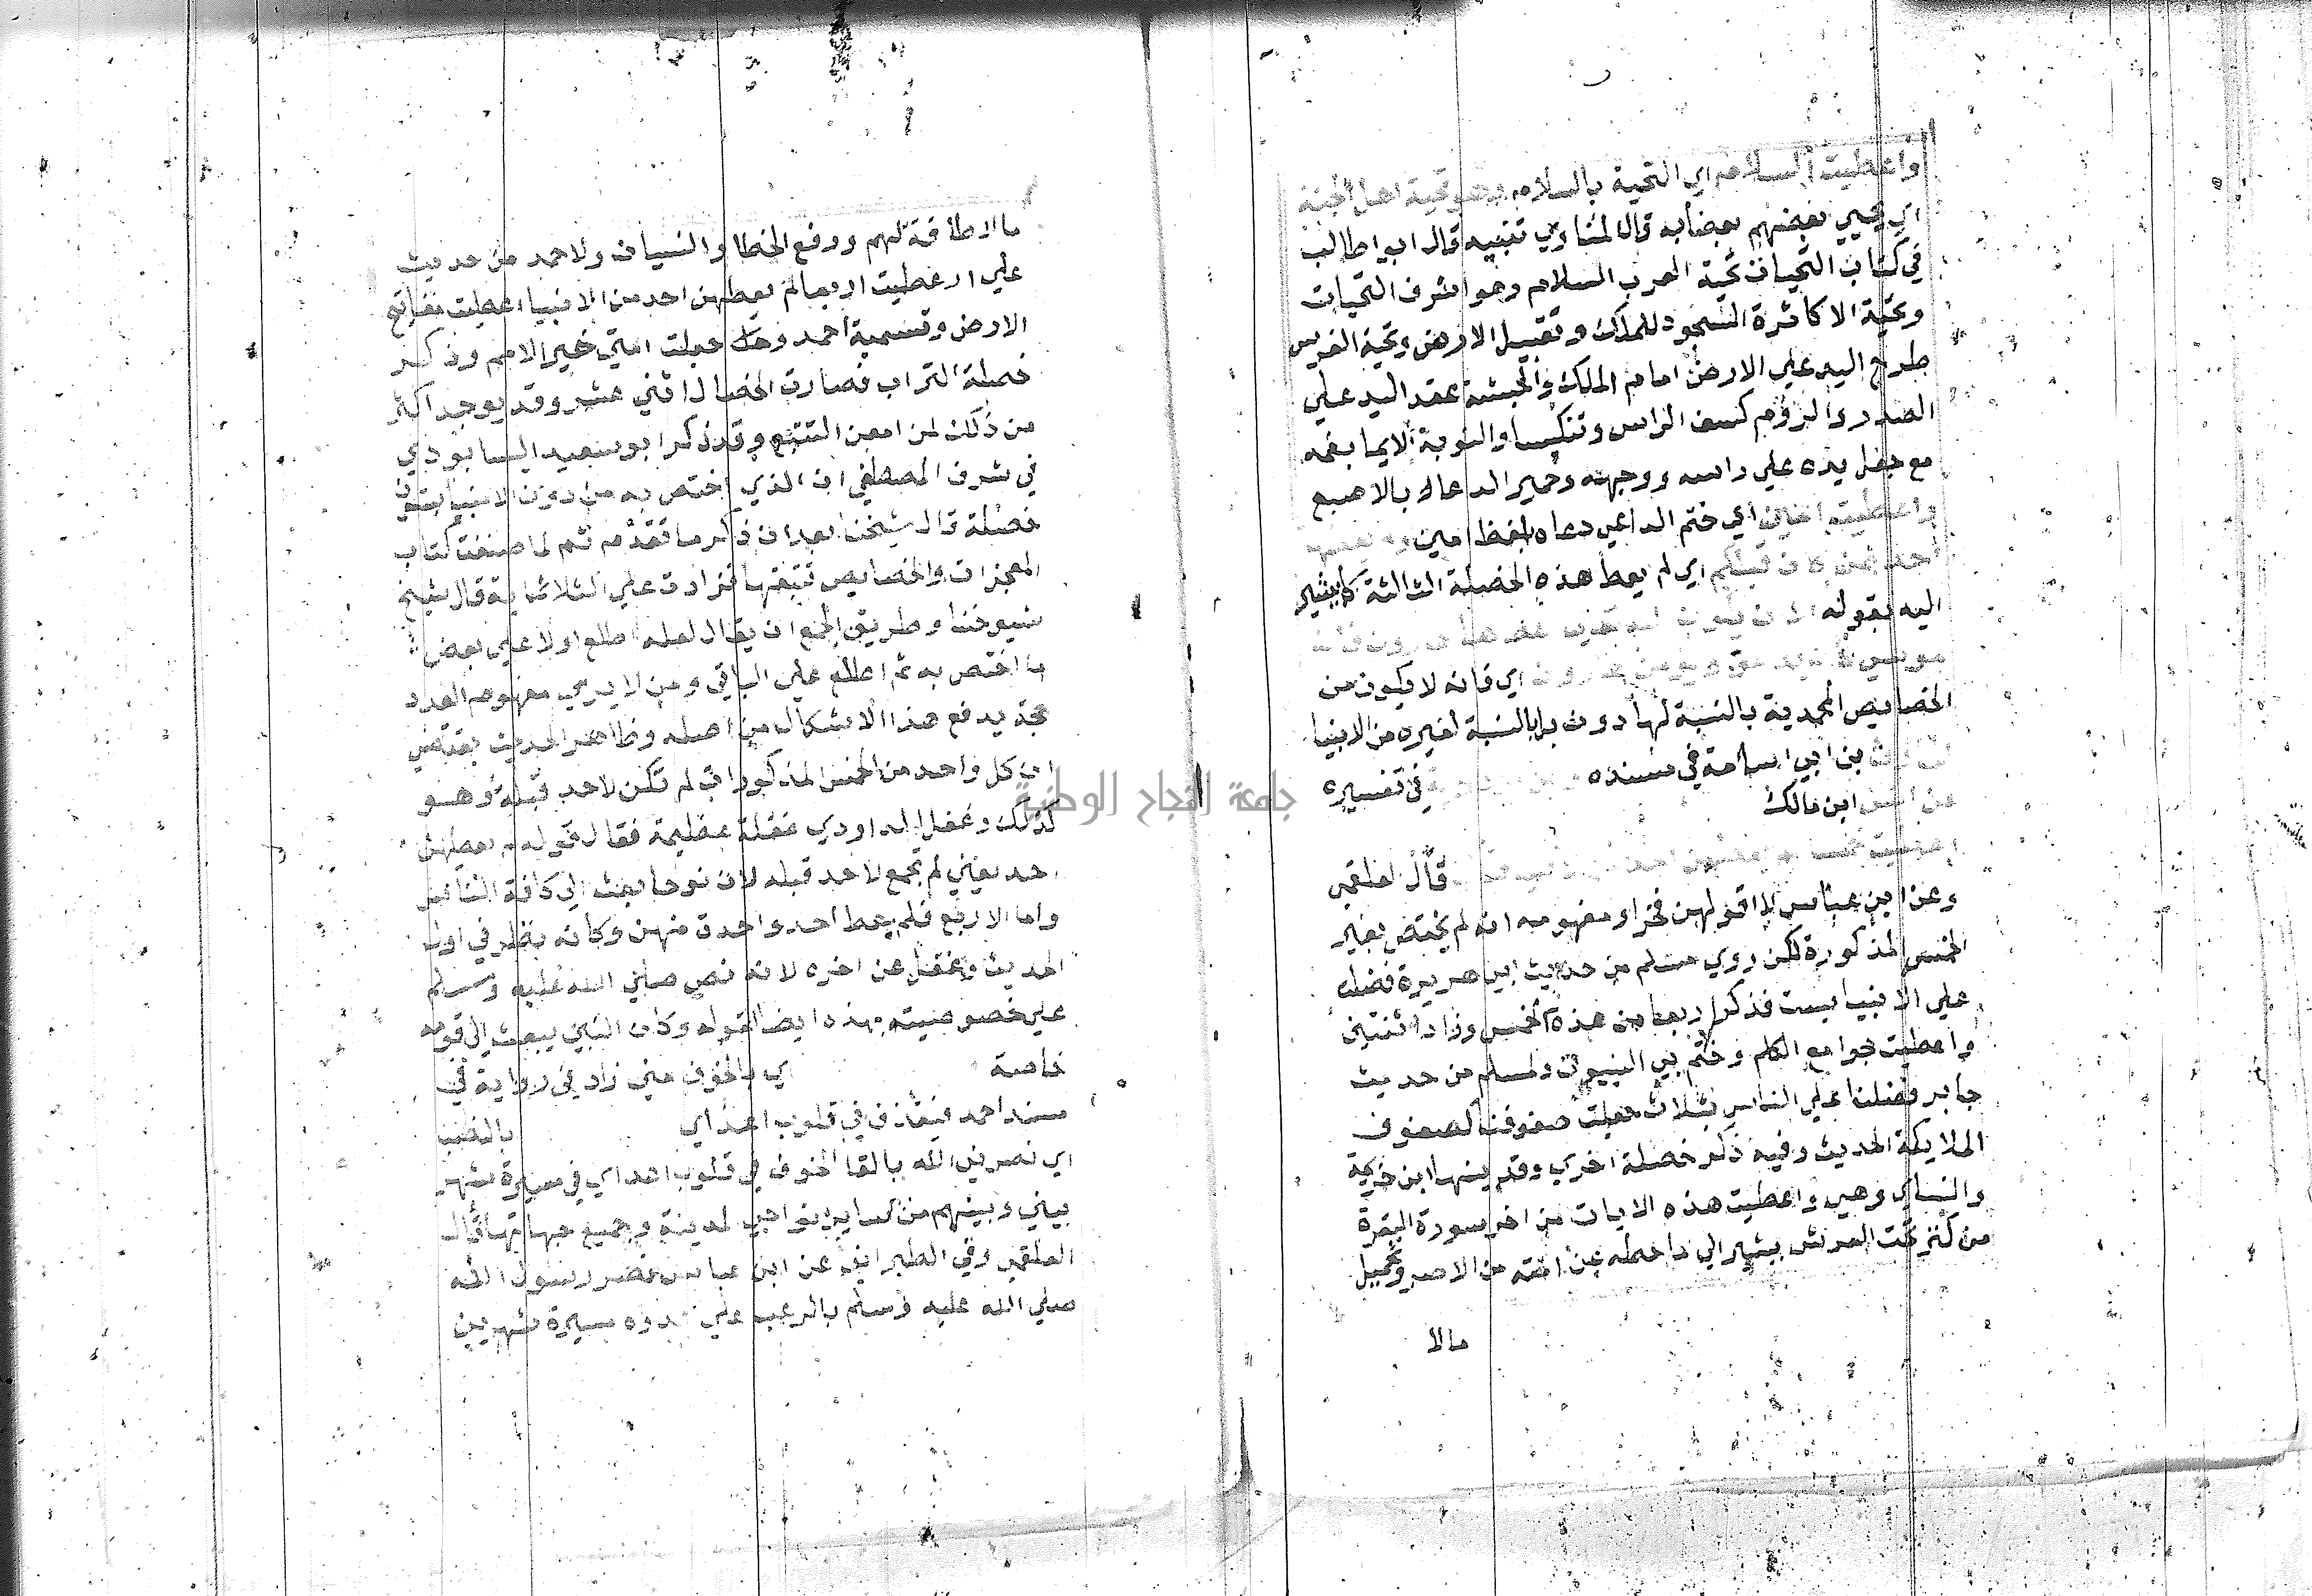 واعطيت السلام اي التحية بالسلام وهو تحية اهل الجنة
اي يحيي بعضهم بعضا به قال المناوي تنبيه قال ابو طالب
في كتاب التحيات تحية العرب السلام وهو اشرف التحيات
وتحية الاكاسرة السجود للملك وتقبيل الارض وتحية الفرس
طرح اليد علي الارض امام الملك والحبشة عقد اليد علي
الصدر والروم كشف الراس وتنكيسها والنوبة الايما بفمه
مع جعل يده علي راسه ووجهه وحمير الدعاء بالاصبع
واعطيت امين اي ختم الداعي دعاه بلفظ امين
احد ممن كان قبلكم اي لم يعط هذه الخصلة الثالثة كما يشير
اليه بقوله الا ان يكون الله
موسي اي فانه لا يكون من
الخصايص المحمدية بالنسبة لها دون بل بالنسبة لغيره من الانبيا
بن ابي اسامة في مسنده في تفسيره
عن انس ابن مالك
اعطيت خمسا لم يعطهن احد قال العلقمي
وعن ابن عباس لا اقولهن فخرا ومفهومه انه لم يختص بغير
الخمس المذكورة لكن روي مسلم من حديث ابي هريرة فضلت
علي الانبيا بست فذكر اربعا من هذه الخمس وزاد اثنتين
واعطيت جوامع الكلم وختم بي النبيون ولمسلم من حديث
جابر فضلنا علي الناس بثلاث جعلت صفوفنا كصفوف
الملايكة الحديث وفيه ذكر خصلة اخري وقد بينها ابن خزيمة
والنساي وهي واعطيت هذه الايات من اخر سورة البقرة
من كنز تحت العرش يشير الي ما حطه عن امته من الاصر وتحميل
مالا
ما لا طاقة لهم ورفع الخطا والنسيان ولاحمد من حديث
علي اعطيت اربعا لم يعطهن احد من الانبيا اعطيت مفاتيح
الارض وتسمية احمد وجعلت امتي خير الامم وذكر
خصلة التراب فصارت الخصال اثني عشر وقد يوجد اكثر
من ذلك لمن امعن التتبع وقد ذكر ابو سعيد اليسابودي
في شرف المصطفي ان الذي اختص به من دون الانبيا ستون
خصلة قال شيخنا بعد ان ذكر ما تقدم ثم لما صنفت كتاب
المعجزات والخصايص تتبعتها فزادت علي الثلاثماية قال شيخ
شيوخنا وطريق الجمع ان يقال لعله اطلع اولا علي بعض
ما اختص به ثم اطلع علي الباقي ومن لا يري مفهوم العدد
حجة يدفع هذا الاشكال من اصله وظاهر الحديث يقتضي
ان كل واحد من الخمس المذكورات لم تكن لاحد قبله وهو
كذلك وغفل الداودي غفلة عظيمة فقال قوله لم يعطهن
احد يعني لم تجمع لاحد قبله لان نوحا بعث الي كافة الناس
واما الاربع فلم يعط احد واحدة منهن وكانه نظر في اول
الحديث وغفل عن اخره لانه نص صلي الله عليه وسلم
علي خصوصيته بهذه ايضا لقوله وكان النبي يبعث الي قومه
خاصة اي بالخوف مني زاد في رواية في
مسند احمد فيقذف في قلوب اعداي بالنصب
اي نصرني الله بالقا الخوف في قلوب اعداي في مسيرة شهر
بيني وبينهم من ساير نواحي المدينة وجميع جهاتها قال
العلقمي وفي الطبراني عن ابن عباس نصر رسول الله
صلي الله عليه وسلم بالرعب علي عدوه مسيرة شهرين
جامعة النجاح الوطنية